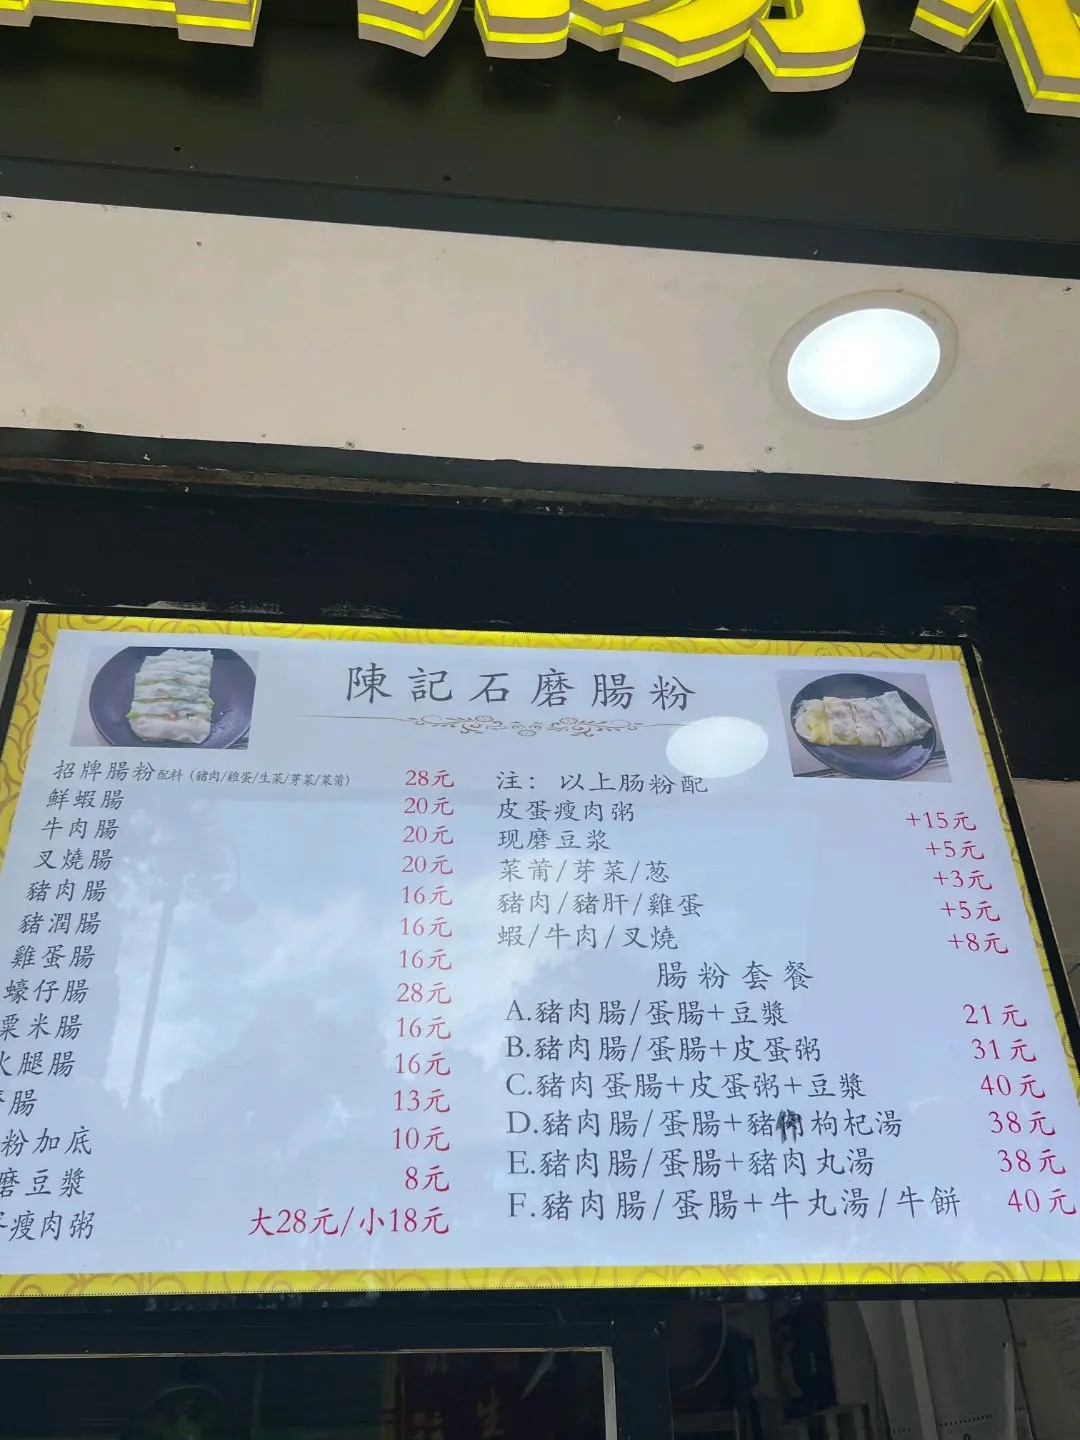 陳記石磨腸粉
招牌腸粉配料（豬肉/雞蛋/生菜/芽菜/菜莆） 28元
鮮蝦腸 20元
牛肉腸 20元
叉燒腸 20元
豬肉腸 16元
豬潤腸 16元
雞蛋腸 16元
蠔仔腸 28元
粟米腸 16元
火腿腸 16元
腸 13元
粉加底 10元
磨豆漿 8元
瘦肉粥 大28元/小18元
注：以上肠粉配
皮蛋瘦肉粥 +15元
现磨豆浆 +5元
菜莆/芽菜/葱 +3元
豬肉/豬肝/雞蛋 +5元
蝦/牛肉/叉燒 +8元
腸粉套餐
A.豬肉腸/蛋腸+豆漿 21元
B.豬肉腸/蛋腸+皮蛋粥 31元
C.豬肉蛋腸+皮蛋粥+豆漿 40元
D.豬肉腸/蛋腸+豬枸杞湯 38元
E.豬肉腸/蛋腸+豬肉丸湯 38元
F.豬肉腸/蛋腸+牛丸湯/牛餅 40元